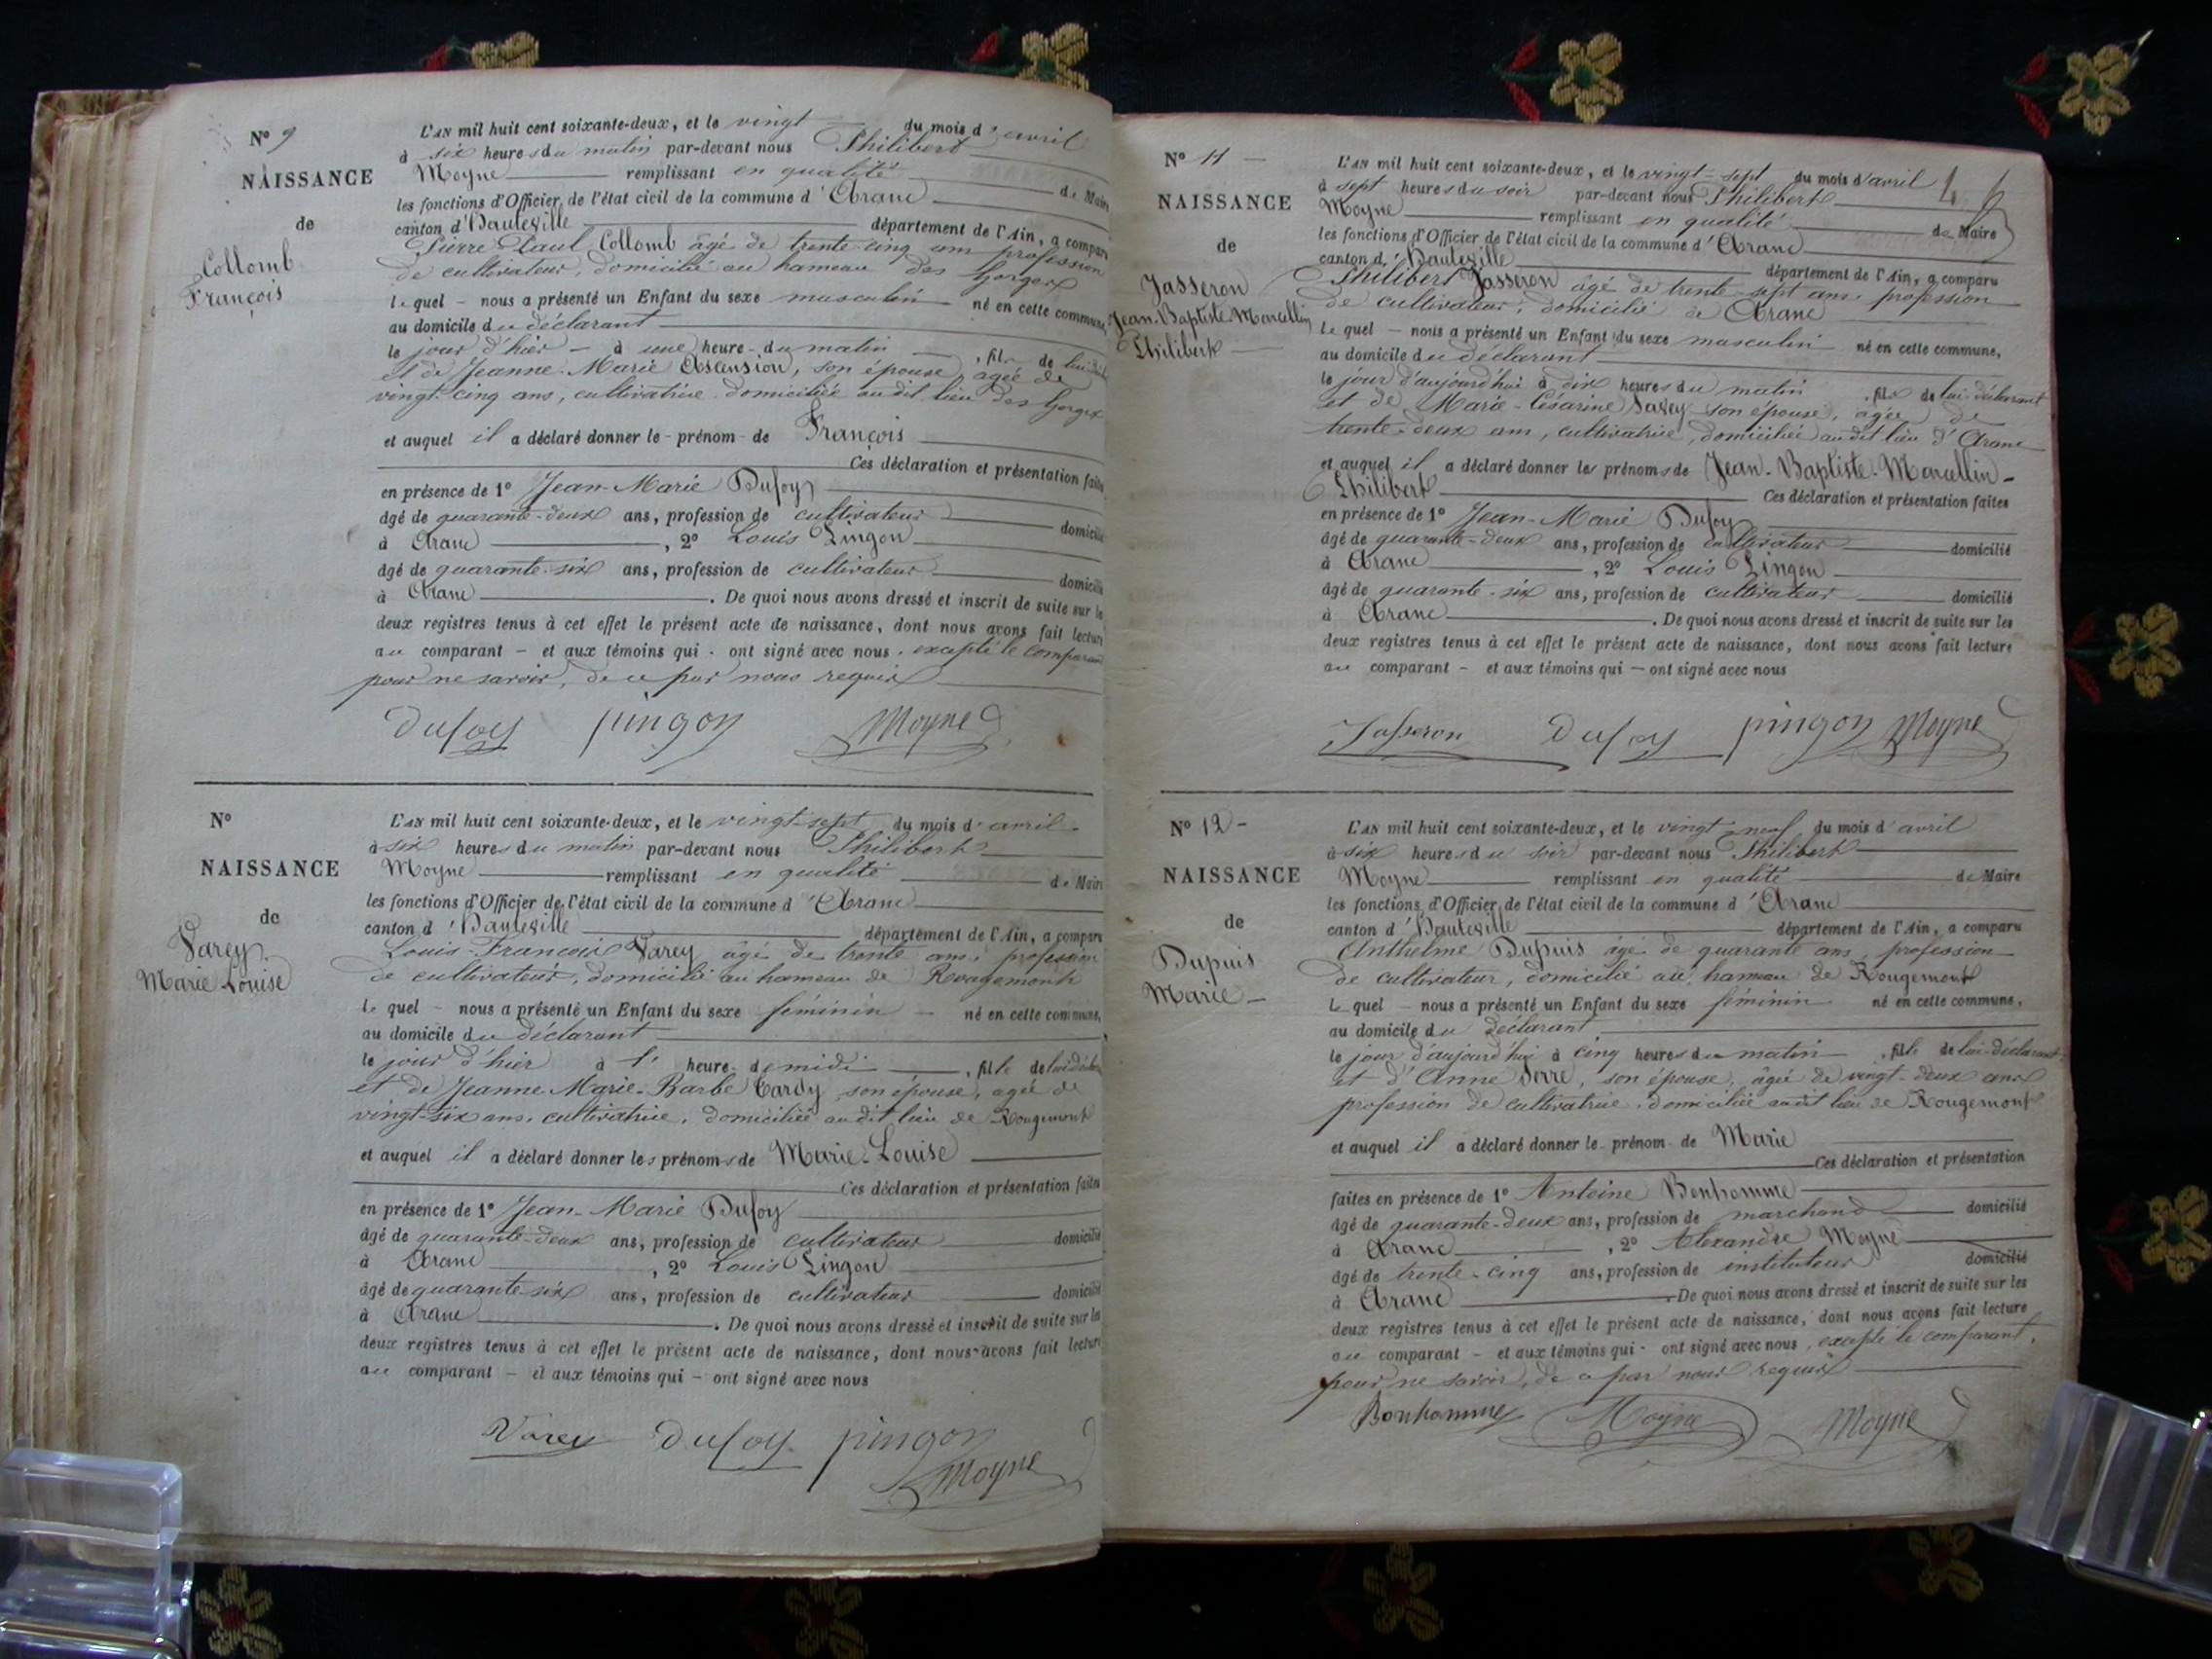 N° 9
NAISSANCE
de
Collomb
François
L'AN mil huit cent soixante-deux, et le vingt du mois d'avril
à six heures du matin par-devant nous Philibert
Moyne remplissant en qualité de Maire
les fonctions d'Officier de l'état civil de la commune d'Aranc
canton d'Hauteville département de l'Ain, a comparu
Pierre-Paul Collomb âgé de trente-cinq ans profession
de cultivateur, domicilié au hameau des Gorges
lequel - nous a présenté un Enfant du sexe masculin né en cette commune,
au domicile du déclarant
le jour d'hier - à une heure du matin, fils de lui
et de Jeanne-Marie Ascension, son épouse, agée de
vingt-cinq ans, cultivatrice domiciliée audit lieu des Gorges
et auquel il a déclaré donner le - prénom - de François
Ces déclaration et présentation faites
en présence de 1° Jean-Marie Dufoy
âgé de quarante-deux ans, profession de cultivateur domicilié
à Aranc, 2° Louis Pingon
âgé de quarante-six ans, profession de cultivateur domicilié
à Aranc. De quoi nous avons dressé et inscrit de suite sur les
deux registres tenus à cet effet le présent acte de naissance, dont nous avons fait lecture
au comparant - et aux témoins qui - ont signé avec nous, excepté le comparant
pour ne savoir, de ce par nous requis
Dufoy pingon Moyne
N°
NAISSANCE
de
Varey
Marie-Louise
L'AN mil huit cent soixante-deux, et le vingt-sept du mois d'avril
à six heures du matin par-devant nous Philibert
Moyne remplissant en qualité de Maire
les fonctions d'Officier de l'état civil de la commune d'Aranc
canton d'Hauteville département de l'Ain, a comparu
Louis-François Varey âgé de trente ans, profession
de cultivateur, domicilié au hameau de Rougemont
lequel - nous a présenté un Enfant du sexe féminin - né en cette commune,
au domicile du déclarant
le jour d'hier à heure de midi, fille de lui
et de Jeanne Marie-Barbe Tardy son épouse, agée de
vingt-six ans, cultivatrice, domiciliée audit lieu de Rougemont
et auquel il a déclaré donner les prénoms de Marie-Louise
Ces déclaration et présentation faites
en présence de 1° Jean-Marie Dufoy
âgé de quarante-deux ans, profession de cultivateur domicilié
à Aranc, 2° Louis Pingon
âgé de quarante-six ans, profession de cultivateur domicilié
à Aranc. De quoi nous avons dressé et inscrit de suite sur les
deux registres tenus à cet effet le présent acte de naissance, dont nous avons fait lecture
au comparant - et aux témoins qui - ont signé avec nous
Varey Dufoy pingon
Moyne
N° 11 -
NAISSANCE
de
Jasseron
Jean-Baptiste-Marcellin
Philibert
L'AN mil huit cent soixante-deux, et le vingt-sept du mois d'avril
à sept heures du soir par-devant nous Philibert
Moyne remplissant en qualité de Maire
les fonctions d'Officier de l'état civil de la commune d'Aranc
canton d'Hauteville département de l'Ain, a comparu
Philibert Jasseron âgé de trente-sept ans, profession
de cultivateur, domicilié de Aranc
lequel - nous a présenté un Enfant du sexe masculin né en cette commune,
au domicile du déclarant
le jour d'aujourd'hui à dix heures du matin, fils de lui-déclarant
et de Marie-Césarine Savey son épouse, agée de
trente-deux ans, cultivatrice, domiciliée audit lieu d'Aranc
et auquel il a déclaré donner les prénoms de Jean-Baptiste-Marcellin-
Philibert Ces déclaration et présentation faites
en présence de 1° Jean-Marie Dufoy
âgé de quarante-deux ans, profession de cultivateur domicilié
à Aranc, 2° Louis Pingon
âgé de quarante-six ans, profession de cultivateur domicilié
à Aranc. De quoi nous avons dressé et inscrit de suite sur les
deux registres tenus à cet effet le présent acte de naissance, dont nous avons fait lecture
au comparant - et aux témoins qui - ont signé avec nous
Jasseron Dufoy pingon Moyne
N° 12 -
NAISSANCE
de
Dupuis
Marie -
L'AN mil huit cent soixante-deux, et le vingt-neuf du mois d'avril
à six heures du soir par-devant nous Philibert
Moyne remplissant en qualité de Maire
les fonctions d'Officier de l'état civil de la commune d'Aranc
canton d'Hauteville département de l'Ain, a comparu
Anthelme Dupuis âgé de quarante ans, profession
de cultivateur, domicilié au hameau de Rougemont
lequel - nous a présenté un Enfant du sexe féminin né en cette commune,
au domicile du déclarant
le jour d'aujourd'hui à cinq heures du matin, fille de lui-déclarant
et d'Anne Serre, son épouse, âgée de vingt-deux ans
profession de cultivatrice, domiciliée audit lieu de Rougemont
et auquel il a déclaré donner le - prénom - de Marie
Ces déclaration et présentation
faites en présence de 1° Antoine Bonhomme
âgé de quarante-deux ans, profession de marchand domicilié
à Aranc, 2° Alexandre Moyne
âgé de trente-cinq ans, profession de instituteur domicilié
à Aranc. De quoi nous avons dressé et inscrit de suite sur les
deux registres tenus à cet effet le présent acte de naissance, dont nous avons fait lecture
au comparant - et aux témoins qui - ont signé avec nous, excepté le comparant,
pour ne savoir, de ce par nous requis
Bonhomme Moyne Moyne